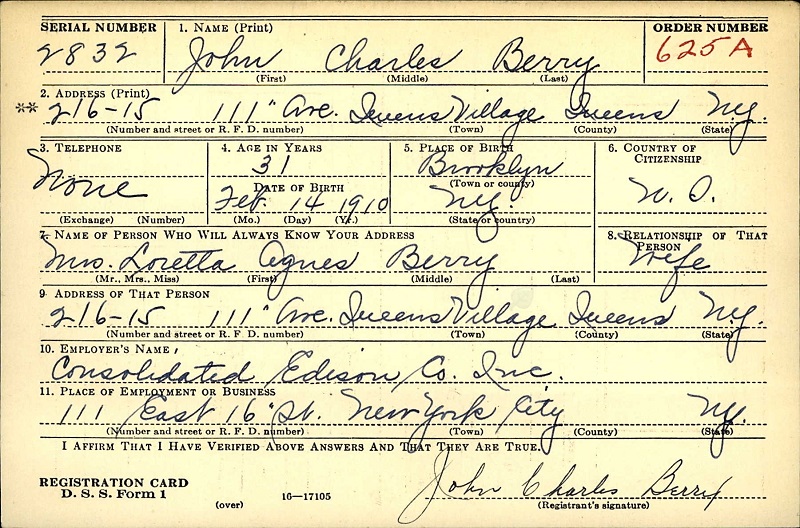 SERIAL NUMBER 1. NAME (Print) ORDER NUMBER
2832 John Charles Berry 625A
(First) (Middle) (Last)
2. ADDRESS (Print)
** 216-15 111" Ave. Queens Village Queens N.Y.
(Number and street or R. F. D. number) (Town) (County) (State)
3. TELEPHONE 4. AGE IN YEARS 5. PLACE OF BIRTH 6. COUNTRY OF CITIZENSHIP
None 31 Brooklyn U.S.
DATE OF BIRTH (Town or county)
Feb. 14 1910 N.Y.
(Exchange) (Number) (Mo.) (Day) (Yr.) (State or country)
7. NAME OF PERSON WHO WILL ALWAYS KNOW YOUR ADDRESS 8. RELATIONSHIP OF THAT PERSON
Mrs. Loretta Agnes Berry Wife
(Mr., Mrs., Miss) (First) (Middle) (Last)
9. ADDRESS OF THAT PERSON
216-15 111" Ave. Queens Village Queens N.Y.
(Number and street or R. F. D. number) (Town) (County) (State)
10. EMPLOYER'S NAME
Consolidated Edison Co. Inc.
11. PLACE OF EMPLOYMENT OR BUSINESS
111 East 16" St. New York City N.Y.
(Number and street or R. F. D. number) (Town) (County) (State)
I AFFIRM THAT I HAVE VERIFIED ABOVE ANSWERS AND THAT THEY ARE TRUE.
REGISTRATION CARD
D. S. S. Form 1 (over) 16—17105 John Charles Berry
(Registrant's signature)